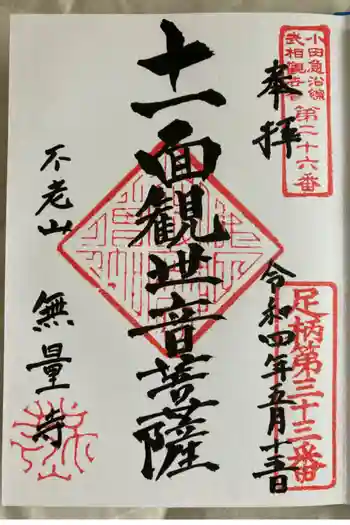 小田急沿線
武相観世音
第二十六番
奉拝
足柄第三十三番
令和四年五月十三日
十一面観世音菩薩
不老山 無量寺